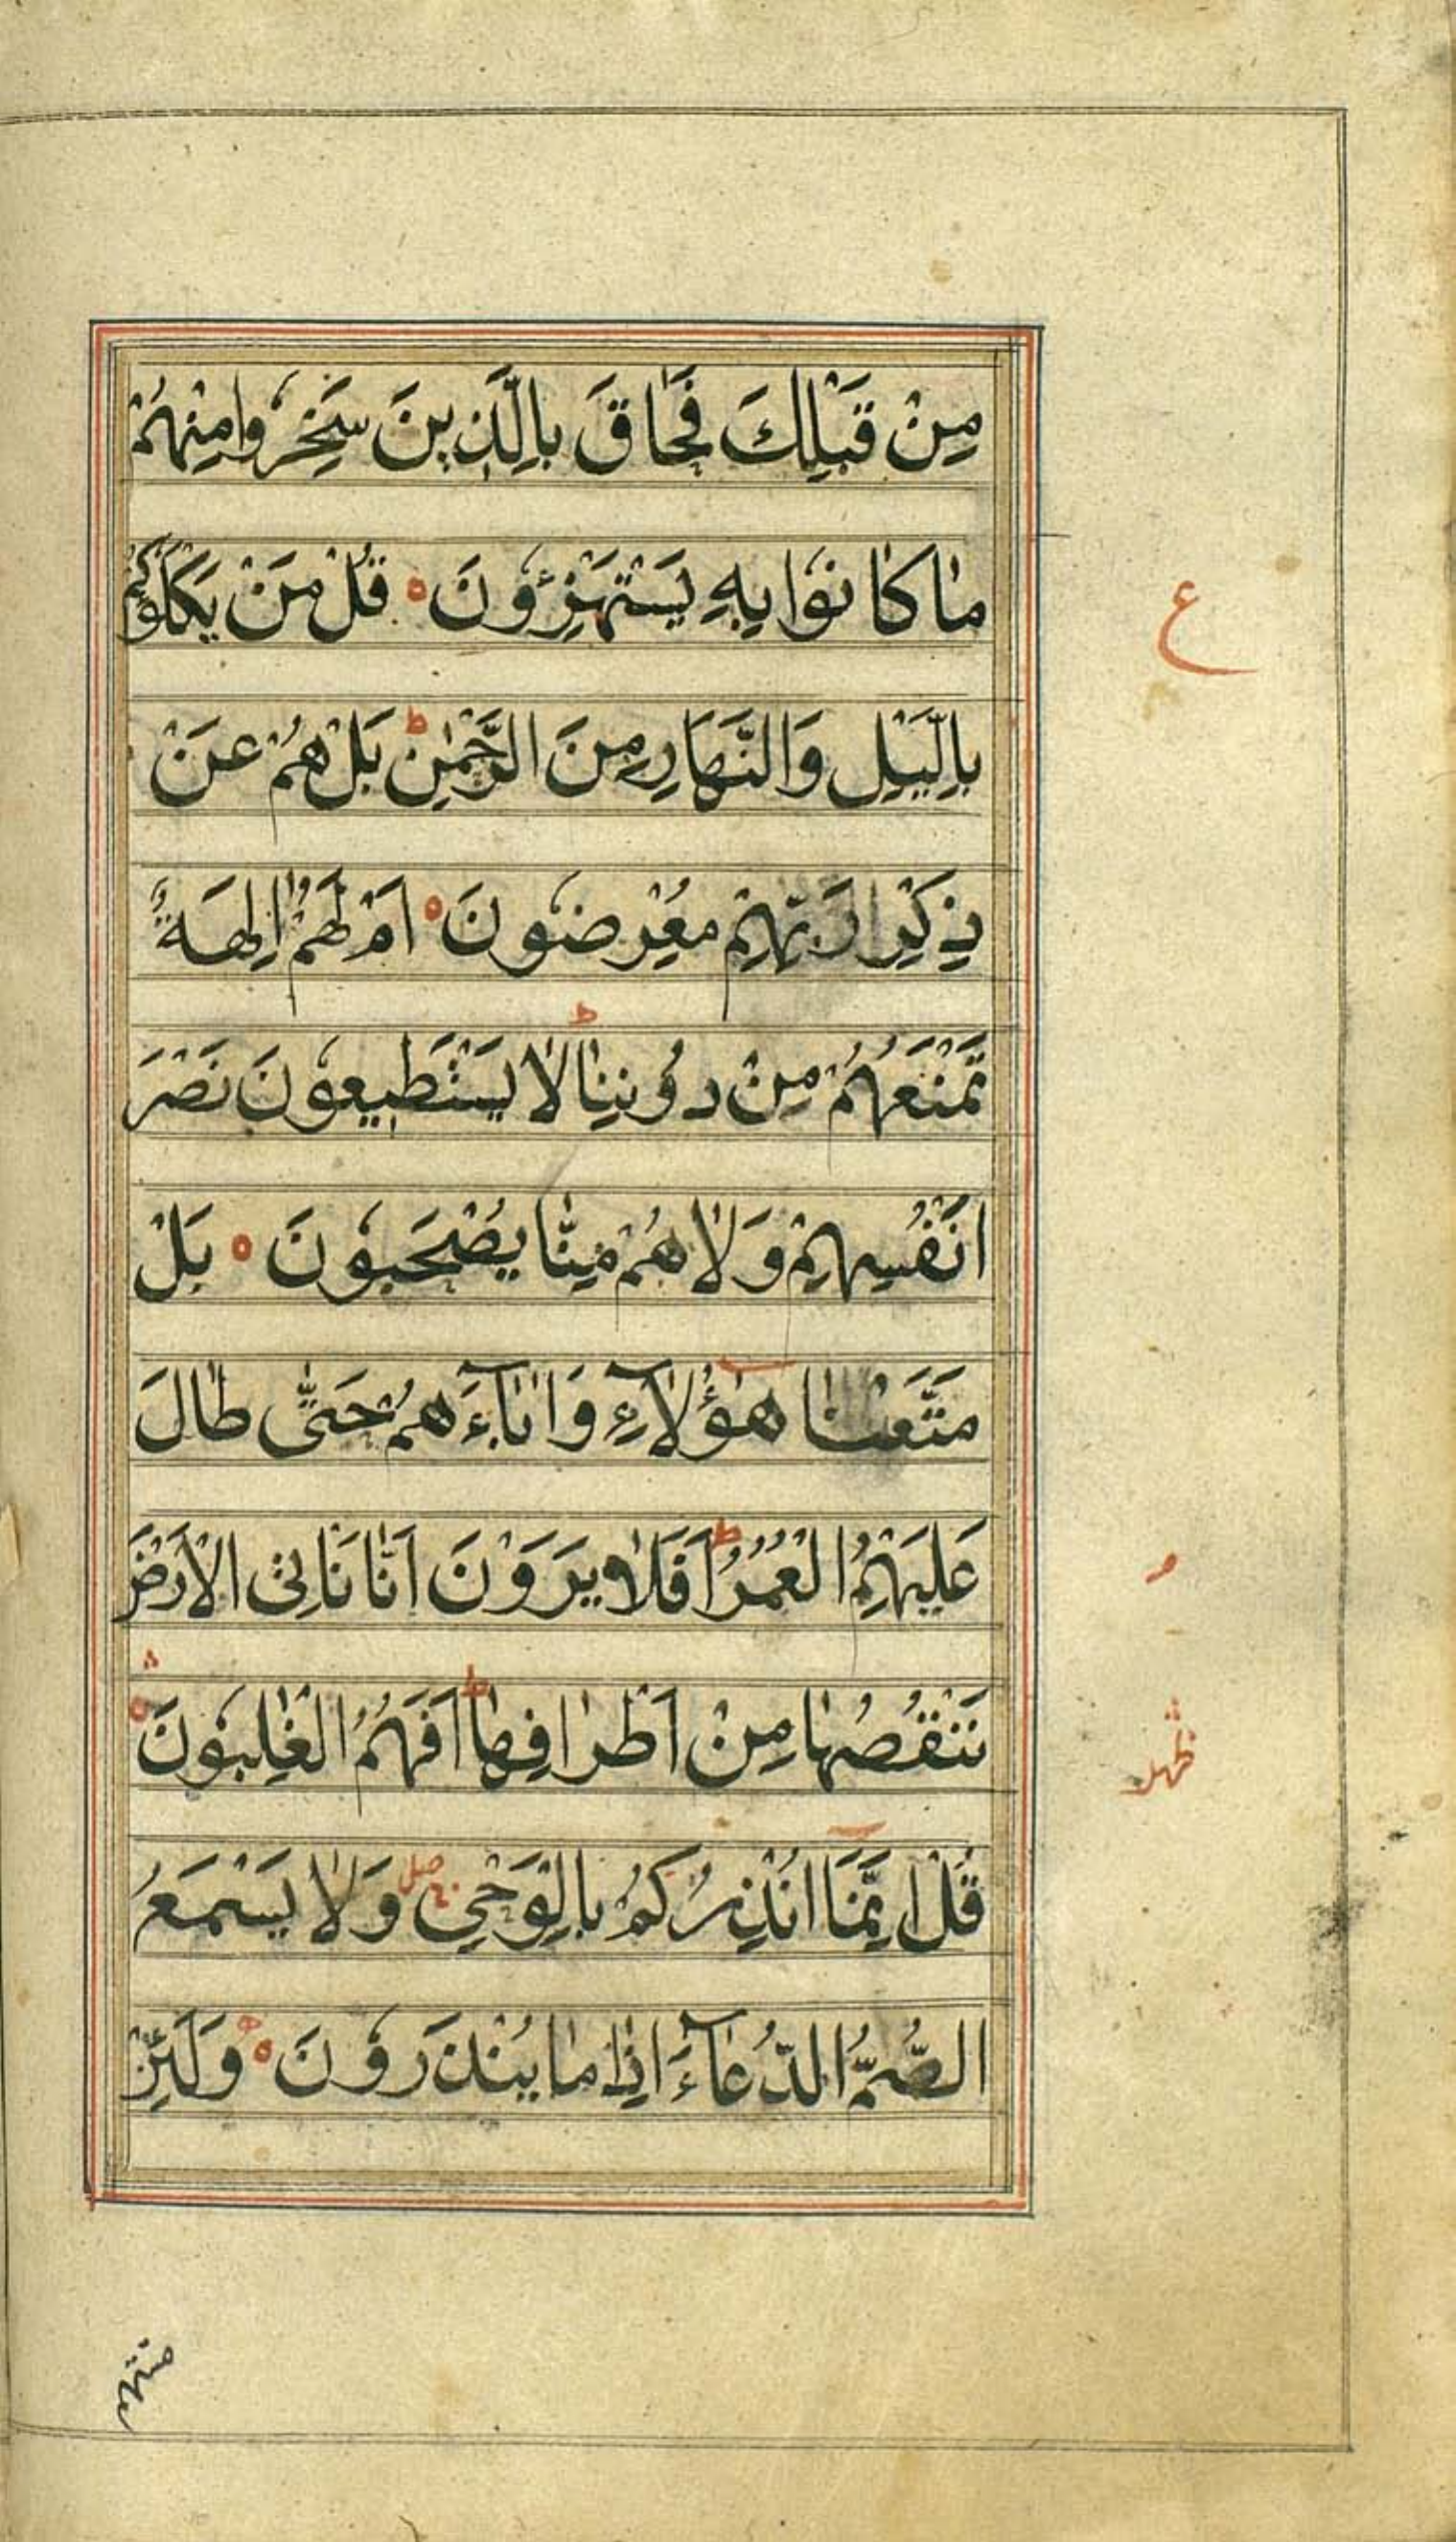 مِنْ قَبْلِكَ فَحَاقَ بِالَّذِينَ سَخِرُوا مِنْهُمْ
مَا كَانُوا بِهِ يَسْتَهْزِؤُنَ ه قُلْ مَنْ يَكْلَؤُكُمْ
ع
بِالَّيْلِ وَالنَّهَارِ مِنَ الرَّحْمٰنِ ط بَلْ هُمْ عَنْ
ذِكْرِ رَبِّهِمْ مُعْرِضُونَ ه اَمْ لَهُمْ اٰلِهَةٌ
تَمْنَعُهُمْ مِنْ دُونِنَا ط لَا يَسْتَطِيعُونَ نَصْرَ
اَنْفُسِهِمْ وَلَا هُمْ مِنَّا يُصْحَبُونَ ه بَلْ
مَتَّعْنَا هٰؤُلَآءِ وَاٰبَآءَهُمْ حَتّٰى طَالَ
عَلَيْهِمُ الْعُمُرُ ط اَفَلَا يَرَوْنَ اَنَّا نَأْتِى الْاَرْضَ
نَنْقُصُهَا مِنْ اَطْرَافِهَا ط اَفَهُمُ الْغٰلِبُونَ ه
قُلْ اِنَّمَا اُنْذِرُكُمْ بِالْوَحْىِ صلى وَلَا يَسْمَعُ
الصُّمُّ الدُّعَآءَ اِذَا مَا يُنْذَرُونَ ه وَلَئِنْ